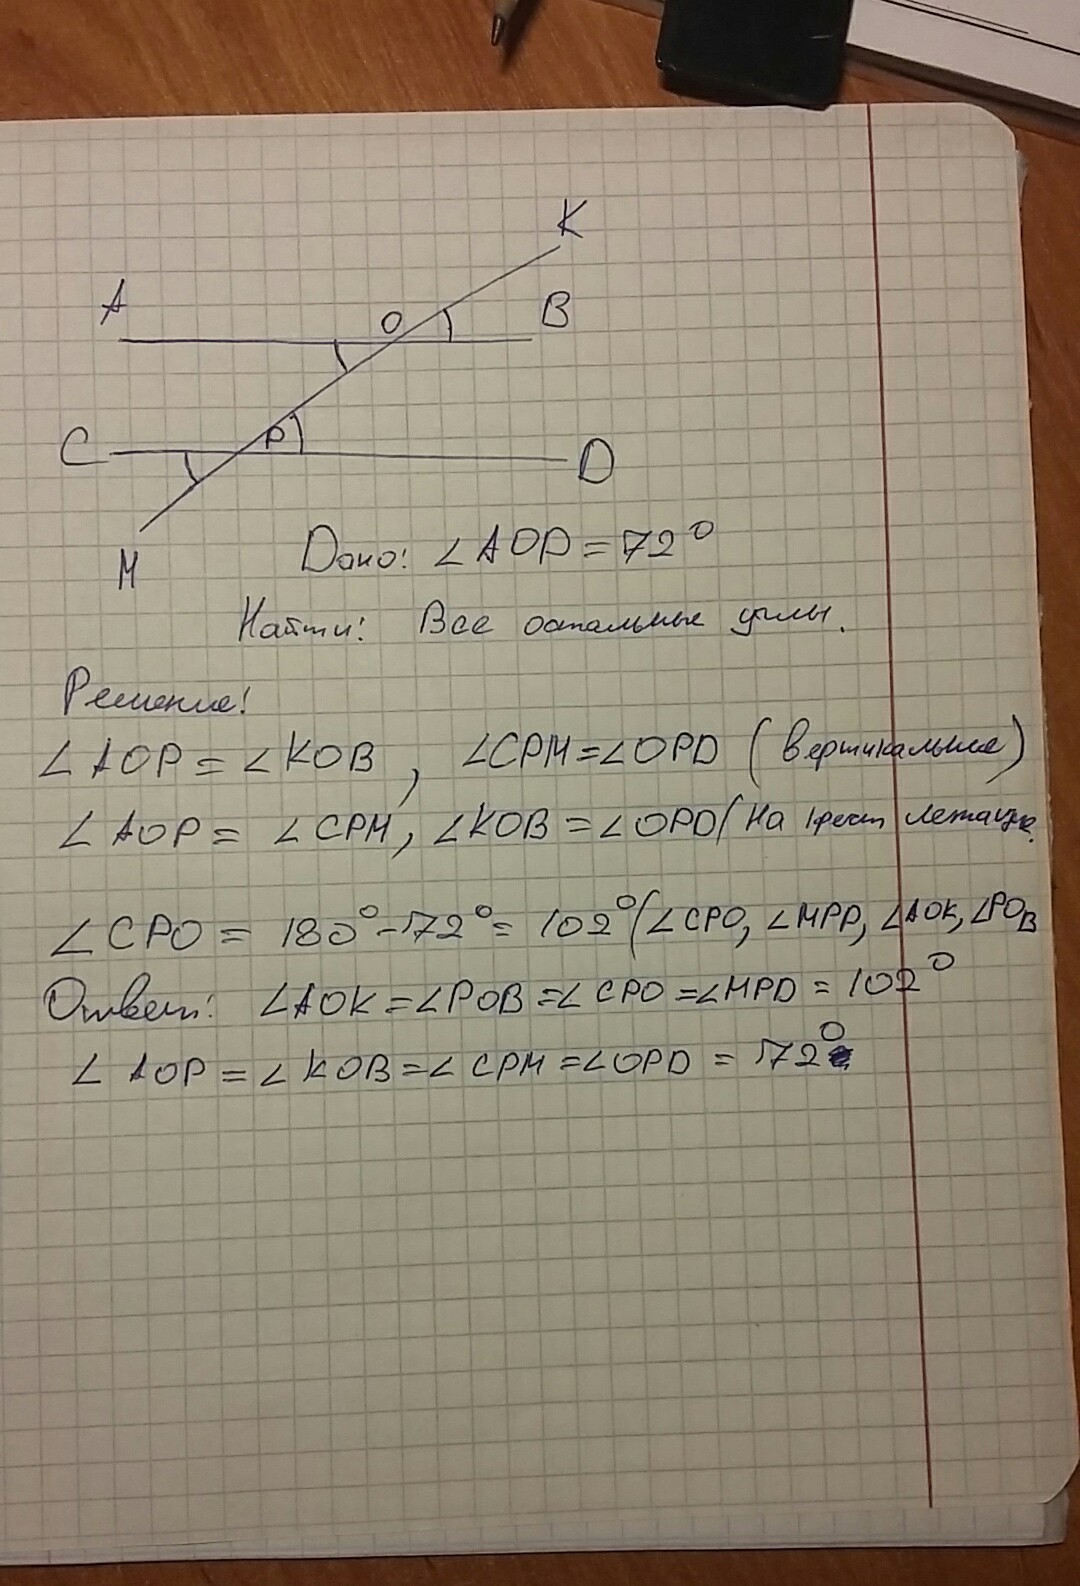 K
A
O
B
C
P
D
M
Дано: ∠AOP = 72°
Найти: Все остальные углы.
Решение:
∠AOP = ∠KOB, ∠CPM = ∠OPD (Вертикальные)
∠AOP = ∠CPM, ∠KOB = ∠OPD (На крест лежащие
∠CPO = 180° - 72° = 102° (∠CPO, ∠MPD, ∠AOK, ∠POB
Ответ: ∠AOK = ∠POB = ∠CPO = ∠MPD = 102°
∠AOP = ∠KOB = ∠CPM = ∠OPD = 72°